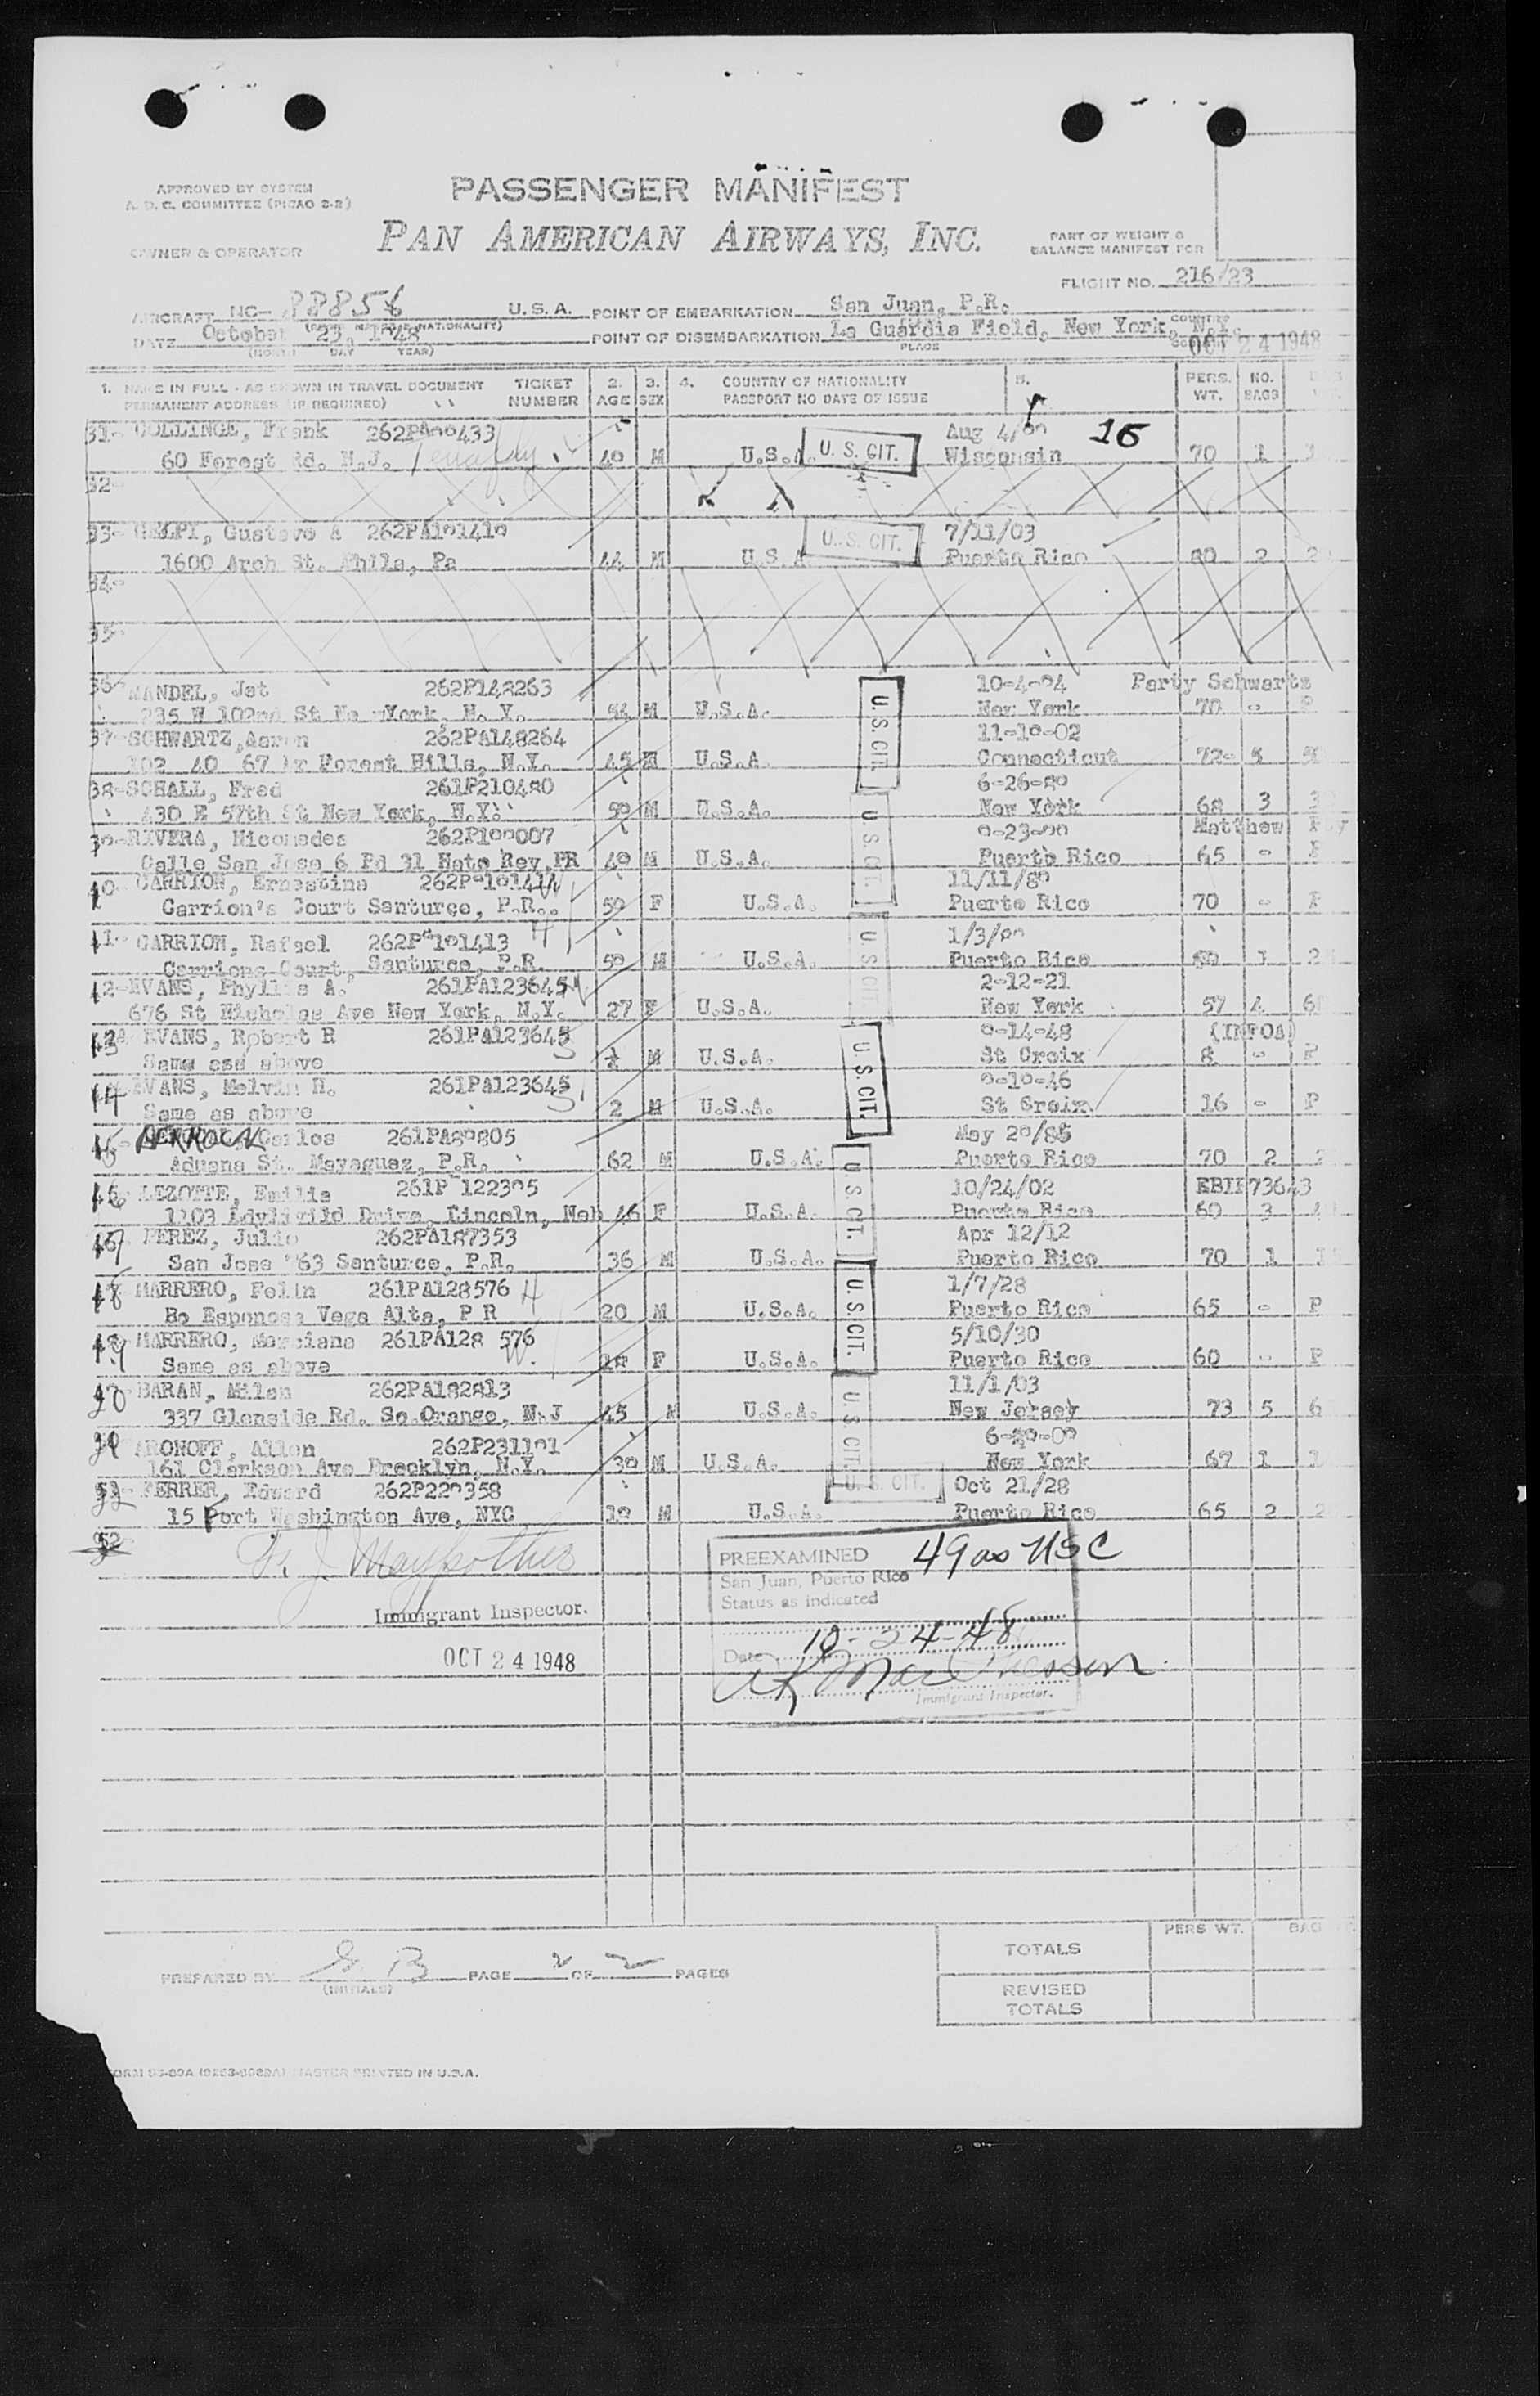 APPROVED BY SYSTEM
A. D. C. COMMITTEE (PICAO 2-R)
OWNER & OPERATOR
PASSENGER MANIFEST
PAN AMERICAN AIRWAYS, INC.
PART OF WEIGHT &
BALANCE MANIFEST FOR
FLIGHT NO. 216/23
AIRCRAFT NC- 88856 U. S. A. POINT OF EMBARKATION San Juan, P.R.
DATE October 23, 1948 POINT OF DISEMBARKATION La Guardia Field, New York, N.Y.
(MONTH DAY YEAR) PLACE
OCT 24 1948
1. NAME IN FULL - AS SHOWN IN TRAVEL DOCUMENT TICKET 2. 3. 4. COUNTRY OF NATIONALITY 5. PERS. NO.
PERMANENT ADDRESS (IF REQUIRED) NUMBER AGE SEX PASSPORT NO DATE OF ISSUE WT. BAGS
31- COLLINGE, Frank Aug 4/ 16
60 Forest Rd. N.J. Tenafly M U.S.A. U. S. CIT. Wisconsin 70 1
32-
33- GELPI, Gustavo A 262PA101410 7/11/03
1600 Arch St. Phila, Pa 44 M U.S.A U. S. CIT. Puerto Rico 80 2 2
34-
35-
36- MANDEL, Jet 262P148263 10-4-94 Party Schwartz
235 W 102nd St New York, N. Y. 54 M U.S.A. New York 70 -
37- SCHWARTZ, Aaron 262PA148264 11-10-02
102 40 67 Dr Forest Hills, N.Y. 45 M U.S.A. Connecticut 72
38- SCHALL, Fred 261P210480
430 E 57th St New York, N.Y. M U.S.A. New York 68 3
39- RIVERA, Nicomedes
Calle San Jose 6 Pd 31 Hato Rey, PR M U.S.A. Puerto Rico 65 -
40- CARRION, Ernestina
Carrion's Court Santurce, P.R. F U.S.A. Puerto Rico 70 -
41- CARRION, Rafael 101413
Carrions Court, Santurce, P.R. M U.S.A. Puerto Rico 1 2
42- EVANS, Phyllis A. 261PA123645 2-12-21
676 St Nicholas Ave New York, N.Y. 27 F U.S.A. New York 57 4
43 EVANS, Robert R 261PA123645 (INFOA)
Same as above M U.S.A. St Croix 8 -
44 EVANS, Melvin H. 261PA123645
Same as above 2 M U.S.A. St Croix 16 - P
45 Carlos
Aduana St. Mayaguez, P.R. 62 M U.S.A. Puerto Rico 70 2
46 LEZOTTE, Emilia 10/24/02 EBII 73643
1103 Idylwild Drive, Lincoln, Neb 46 F U.S.A. Puerto Rico 60 3
47 PEREZ, Julio 262PA187353 Apr 12/12
San Jose 763 Santurce, P.R. 36 M U.S.A. Puerto Rico 70 1
48 MARRERO, Felin 261PA128576 1/7/28
Bo Esponosa Vega Alta, P R 20 M U.S.A. Puerto Rico 65 - P
49 MARRERO, Marciana 261PA128 576 5/10/30
Same as above 18 F U.S.A. Puerto Rico 60 - P
50 BARAN, Milan 262PA182813 11/1/03
337 Glenside Rd. So.Orange, N.J 45 M U.S.A. New Jersey 73 5 6
ARONOFF, Allen 262P231101
161 Clarkson Ave Brooklyn, N.Y. 39 M U.S.A. New York 67 1
FERRER, Edward Oct 21/28
15 Fort Washington Ave, NYC 19 M U.S.A. U. S. CIT. Puerto Rico 65 2 2
U. S. CIT.
U. S. CIT.
U. S. CIT.
U. S. CIT.
U. S. CIT.
U. S. CIT.
U. S. CIT.
52
Immigrant Inspector.
OCT 24 1948
PREEXAMINED 49 as USC
San Juan, Puerto Rico
Status as indicated
Date 10-24-48
Immigrant Inspector.
PREPARED BY G. B PAGE 2 OF 2 PAGES
(INITIALS)
PERS WT.
TOTALS
REVISED
TOTALS
MASTER PRINTED IN U.S.A.